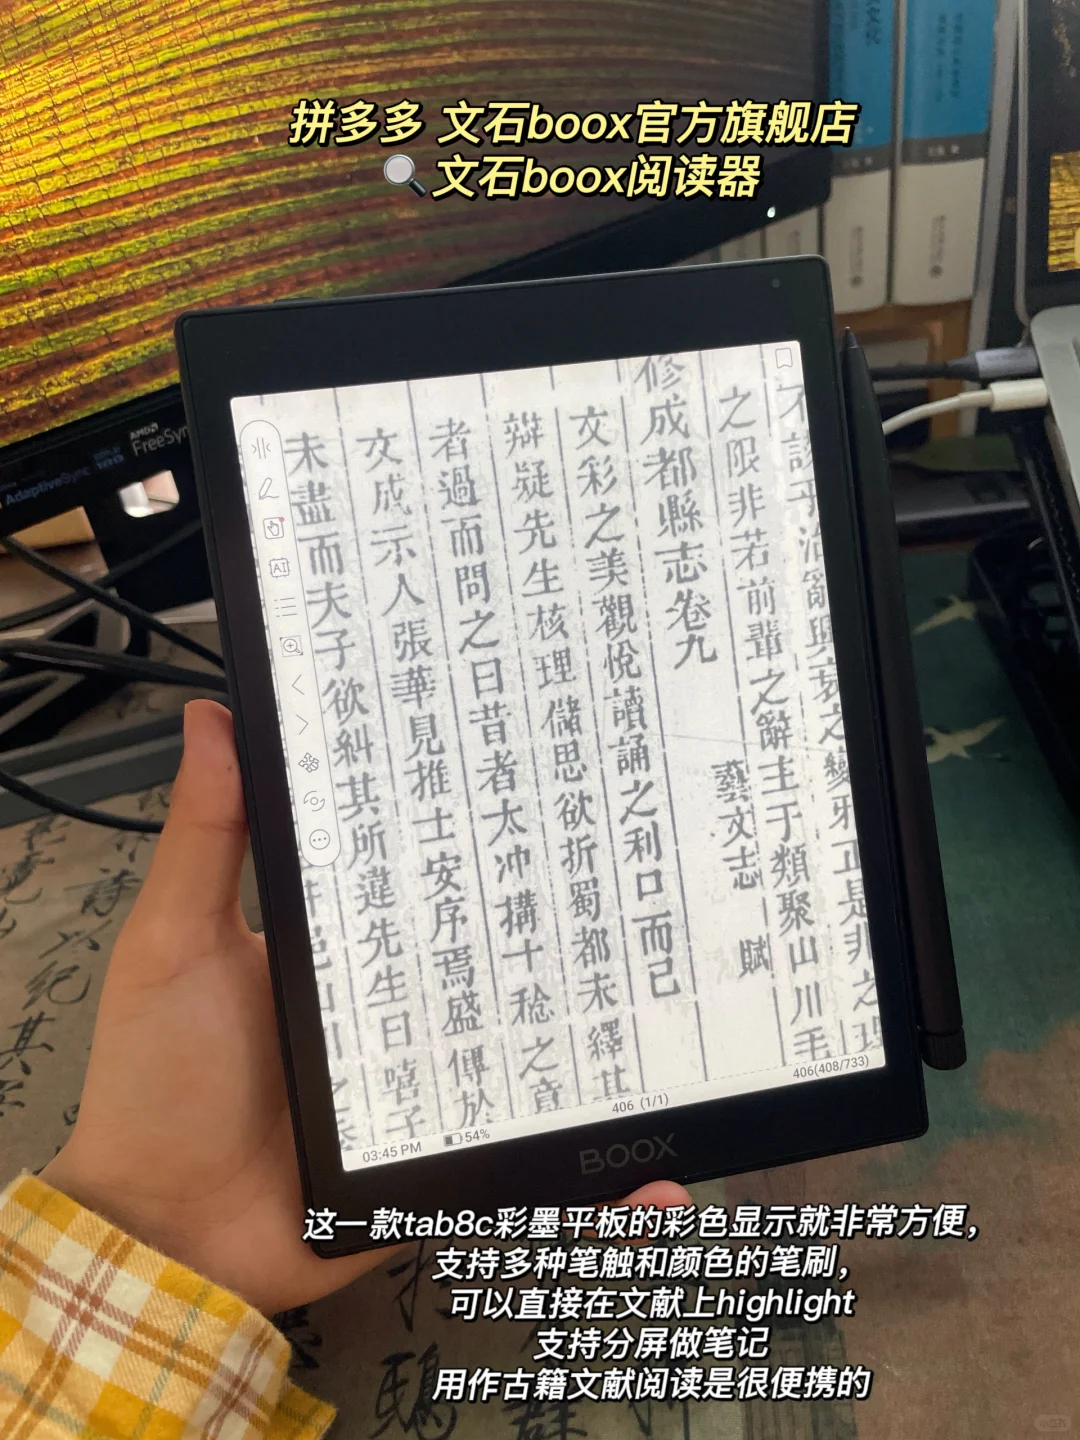 拼多多 文石boox官方旗舰店
文石boox阅读器
AMD
FreeSync
AdaptiveSync
該乎治亂興衰之變邪正是非之
之限非若前輩之辭主于類聚山川毛
藝文志 賦
修成都縣志卷九
文彩之美觀悅讀誦之利口而已
辯疑先生核理儲思欲折蜀都未繹其
者過而問之曰昔者太冲搆十稔之意
文成示人張華見推士安序焉盛傳於
未盡而夫子欲糾其所違先生曰嘻子
AI
03:45 PM 54%
406 (1/1)
406(408/733)
BOOX
这一款tab8c彩墨平板的彩色显示就非常方便，
支持多种笔触和颜色的笔刷，
可以直接在文献上highlight
支持分屏做笔记
用作古籍文献阅读是很便携的